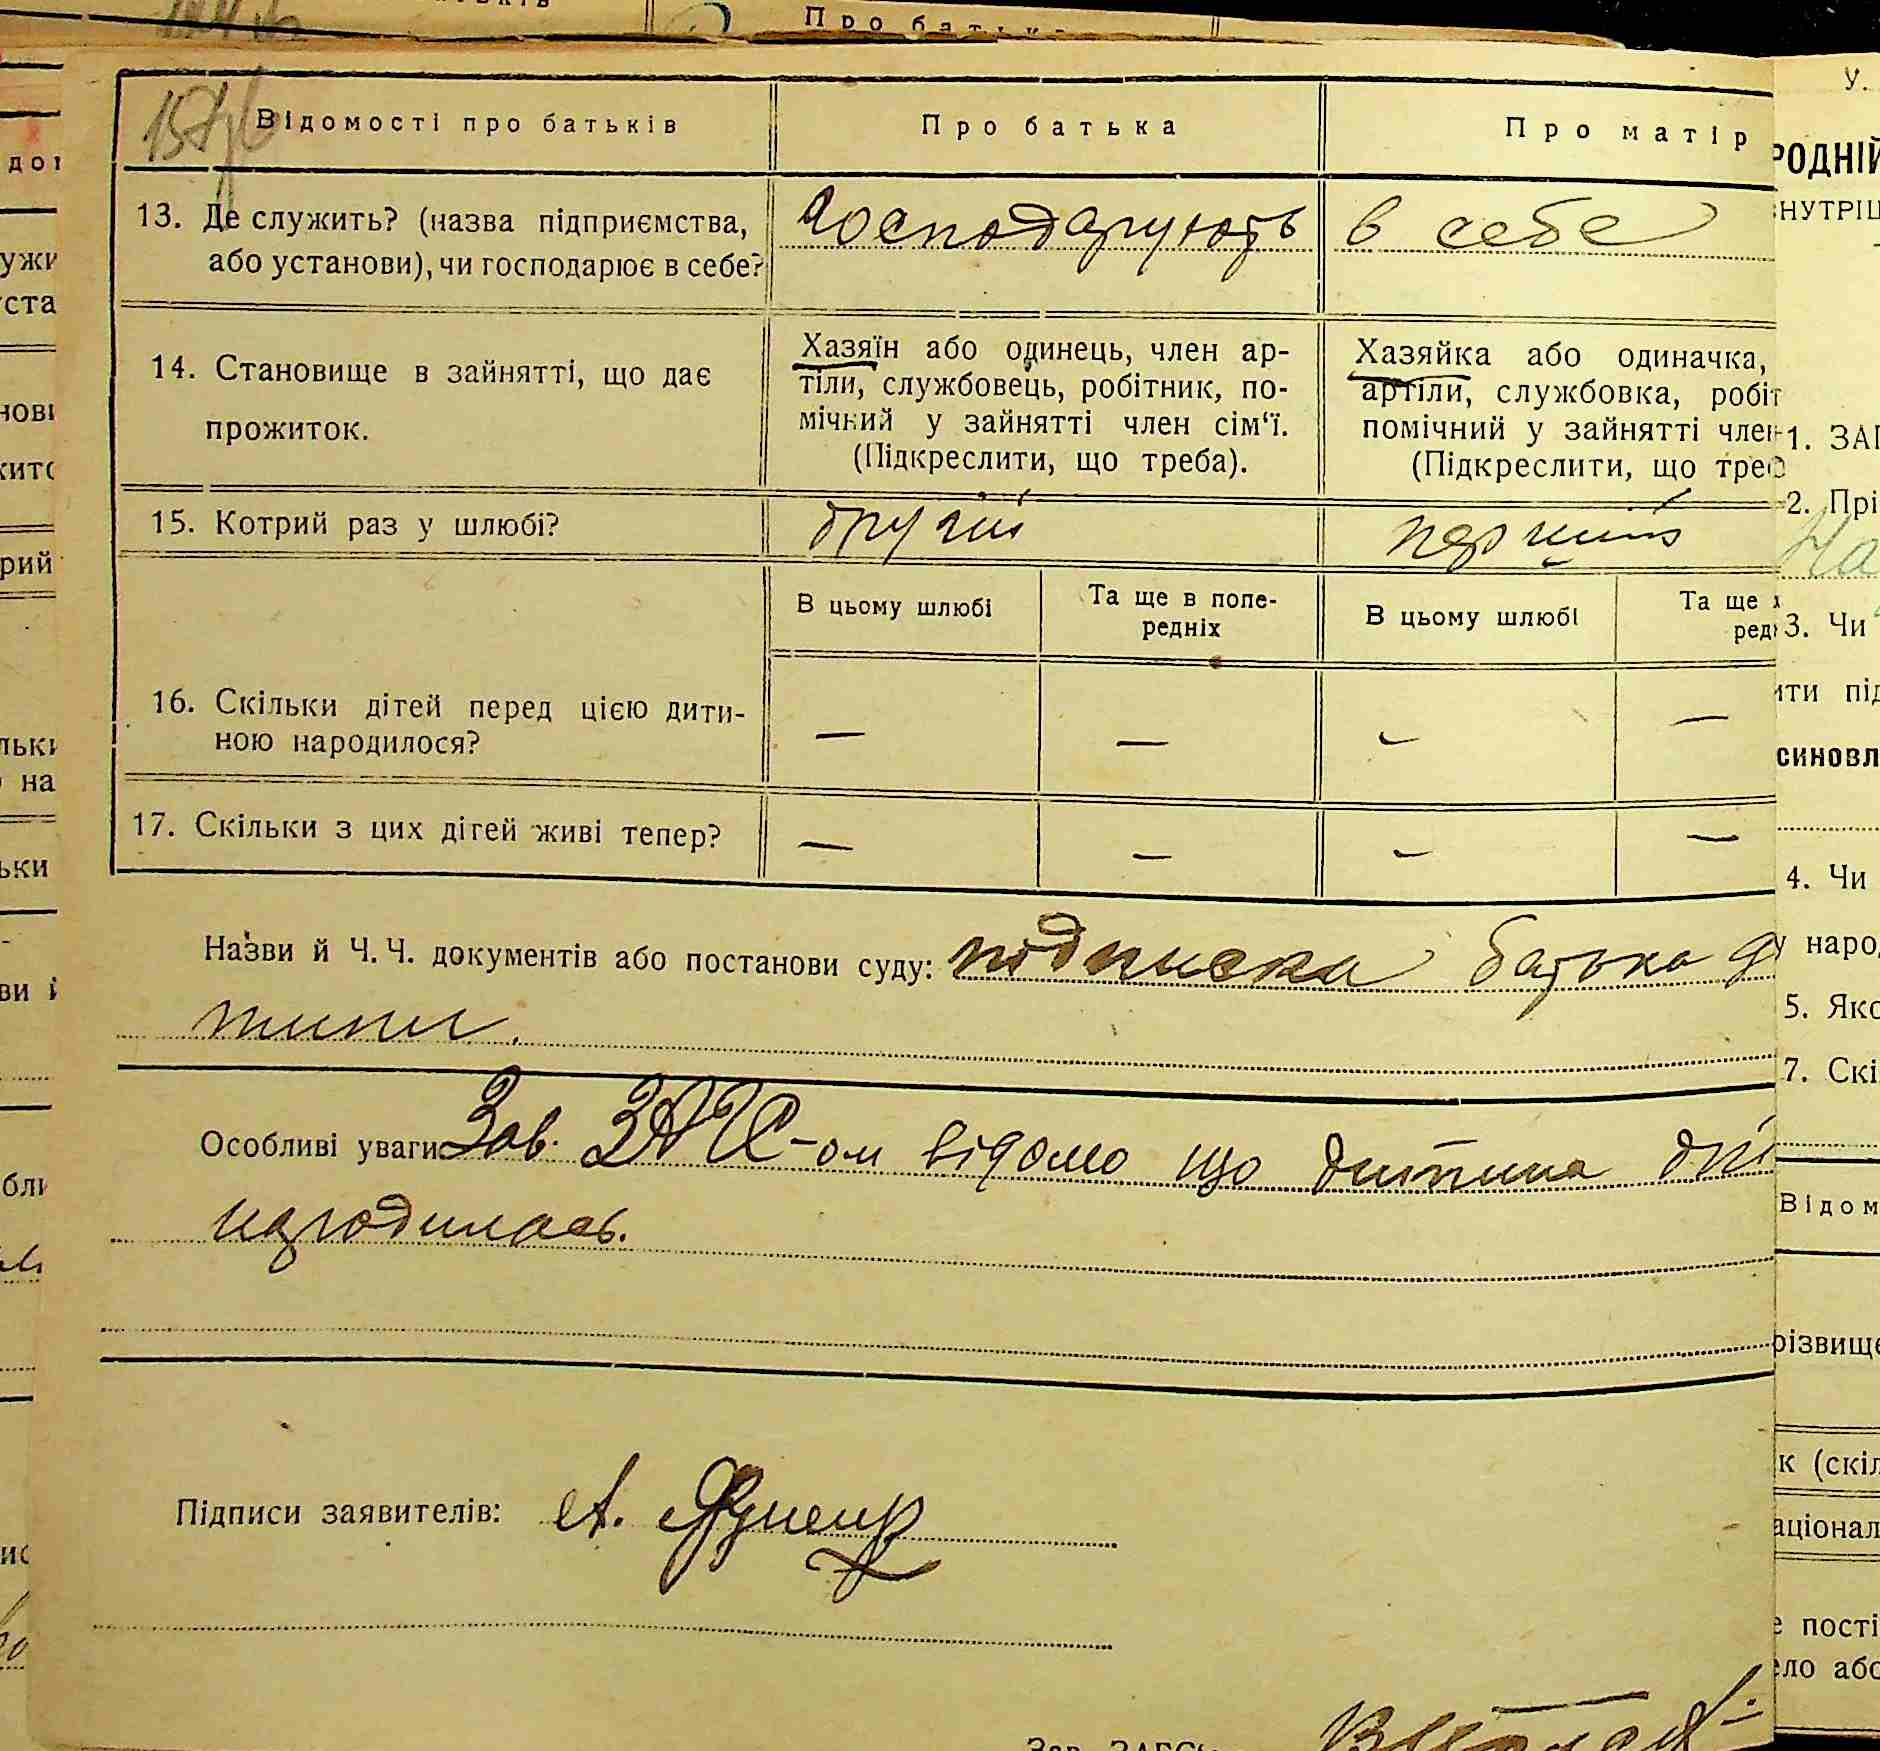 Про батька
157/б
Відомості про батьків
Про батька
Про матір
13. Де служить? (назва підприємства,
або установи), чи господарює в себе?
господарують
в себе
14. Становище в зайнятті, що дає
прожиток.
Хазяїн або одинець, член ар-
тіли, службовець, робітник, по-
мічний у зайнятті член сім‘ї.
(Підкреслити, що треба).
Хазяйка або одиначка,
артіли, службовка, робіт
помічний у зайнятті член
(Підкреслити, що треб
15. Котрий раз у шлюбі?
другий
перший
В цьому шлюбі
Та ще в попе-
редніх
В цьому шлюбі
Та ще
ред
16. Скільки дітей перед цією дити-
ною народилося?
— — — —
17. Скільки з цих дітей живі тепер?
— — — —
Назви й Ч. Ч. документів або постанови суду: підписка батька д
тини.
Особливі уваги Зав. ЗАГС-ом відомо що дитина
народилась.
Підписи заявителів: А.
Зав. ЗАГС
У.
РОДНІЙ
НУТРІШ
1. ЗАГ
2. Прі
На
3. Чи
ити під
СИНОВЛ
4. Чи
у наро
5. Яко
7. Скі
Відом
різвище
к (скіл
аціонал
е пості
ело або